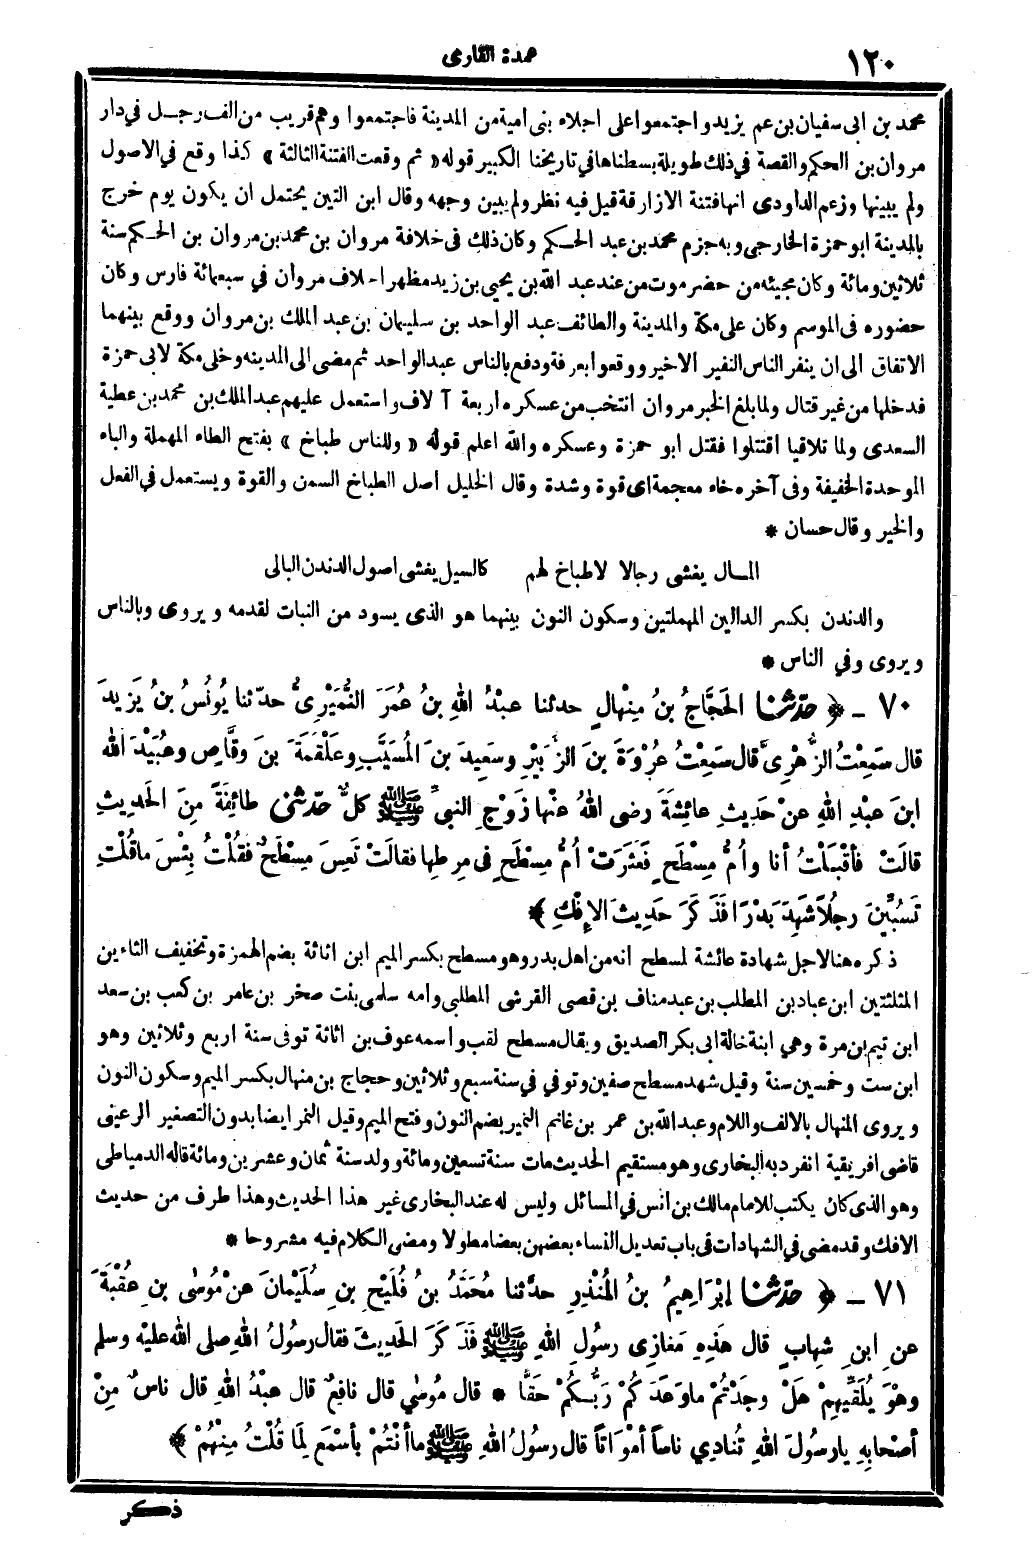 ١٢٠
عمدة القارى
محمد بن ابى سفيان بن عم يزيد واجتمعوا على اجلاء بنى امية من المدينة فاجتمعوا وهم قريب من الف رجل في دار
مروان بن الحكم والقصة في ذلك طويلة بسطناها في تاريخنا الكبير قوله «ثم وقعت الفتنة الثالثة» كذا وقع في الاصول
ولم يبينها وزعم الداودى انها فتنة الازارقة قيل فيه نظر ولم يبين وجهه وقال ابن التين يحتمل ان يكون يوم خرج
بالمدينة ابو حمزة الخارجى وبه جزم محمد بن عبد الحكم وكان ذلك فى خلافة مروان بن محمد بن مروان بن الحكم سنة
ثلاثين ومائة وكان مجيئه من حضرموت من عند عبد الله بن يحيى بن زيد مظهرا خلاف مروان في سبعمائة فارس وكان
حضوره فى الموسم وكان على مكة والمدينة والطائف عبد الواحد بن سليمان بن عبد الملك بن مروان ووقع بينهما
الاتفاق الى ان ينفر الناس النفير الاخير ووقعوا بعرفة ودفع بالناس عبد الواحد ثم مضى الى المدينه وخلى مكة لابى حمزة
فدخلها من غير قتال ولما بلغ الخبر مروان انتخب من عسكره اربعة آلاف واستعمل عليهم عبد الملك بن محمد بن عطية
السعدى ولما تلاقيا اقتتلوا فقتل ابو حمزة وعسكره والله اعلم قوله «وللناس طباخ» بفتح الطاء المهملة والباء
الموحدة الخفيفة وفى آخره خاء معجمة اى قوة وشدة وقال الخليل اصل الطباخ السمن والقوة ويستعمل في الفعل
والخير وقال حسان *
المال يغشى رجالا لا طباخ لهم كالسيل يغشى اصول الدندن البالى
والدندن بكسر الدالين المهملتين وسكون النون بينهما هو الذى يسود من النبات لقدمه ويروى وبالناس
ويروى وفي الناس *
٧٠ - ﴿ حدّثنا الحَجَّاجُ بنُ مِنْهالٍ حدثنا عبْدُ اللهِ بنُ عُمَرَ النُّمَيْرِىُّ حدّثنا يُونُسُ بنُ يَزِيدَ
قال سَمِعْتُ الزُّهْرِىَّ قال سَمِعْتُ عُرْوَةَ بنَ الزُّبَيْرِ وسَعِيدَ بنَ المُسَيَّبِ وعَلْقَمَةَ بنَ وقَّاصٍ وعُبَيْدَ اللهِ
ابنَ عبْدِ اللهِ عنْ حَدِيثِ عائِشَةَ رضى اللهُ عنْها زَوْجِ النبىِّ ﷺ كلٌّ حدّثنى طائِفَةً مِنَ الحَدِيثِ
قالَتْ فأقْبَلْتُ أنا وأُمُّ مِسْطَحٍ فَعَثَرَتْ أُمُّ مِسْطَحٍ فى مِرطِها فقالَتْ تَعِسَ مِسْطَحٌ فقُلْتُ بِئْسَ ماقُلْتِ
تَسُبِّينَ رجُلاً شَهِدَ بَدْرًا فَذَكَرَ حَدِيثَ الإِفْكِ ﴾
ذكره هنا لاجل شهادة عائشة لمسطح انه من اهل بدر وهو مسطح بكسر الميم ابن اثاثة بضم الهمزة وتخفيف الثاءين
المثلثتين ابن عباد بن المطلب بن عبد مناف بن قصى القرشى المطلبى وامه سلمى بنت صخر بن عامر بن كعب بن سعد
ابن تيم بن مرة وهي ابنة خالة ابى بكر الصديق ويقال مسطح لقب واسمه عوف بن اثاثة توفى سنة اربع وثلاثين وهو
ابن ست وخمسين سنة وقيل شهد مسطح صفين وتوفي في سنة سبع وثلاثين وحجاج بن منهال بكسر الميم وسكون النون
ويروى المنهال بالالف واللام وعبد الله بن عمر بن غانم النمير بضم النون وفتح الميم وقيل النمر ايضا بدون التصغير الرعينى
قاضى افريقية انفرد به البخارى وهو مستقيم الحديث مات سنة تسعين ومائة وولد سنة ثمان وعشرين ومائة قاله الدمياطى
وهو الذى كان يكتب للامام مالك بن انس في المسائل وليس له عند البخارى غير هذا الحديث وهذا طرف من حديث
الافك وقد مضى في الشهادات فى باب تعديل النساء بعضهن بعضا مطولا ومضى الكلام فيه مشروحا *
٧١ - ﴿ حدّثنا إبْرَاهِيمُ بنُ المُنْذِرِ حدَّثنا مُحَمَّدُ بنُ فُلَيْحِ بنِ سُلَيْمانَ عنْ مُوسَى بنِ عُقْبَةَ
عنِ ابنِ شِهابٍ قال هَذِهِ مَغازِى رسُولِ اللهِ ﷺ فَذَكَرَ الحَدِيثَ فقال رسُولُ اللهِ صلى الله عليْه وسلم
وهْوَ يُلَقِّيهِمْ هَلْ وجَدْتُمْ ماوَعَدَكُمْ رَبُّكُمْ حَقًّا * قال مُوسَى قال نافِعٌ قال عبْدُ اللهِ قال ناسٌ مِنْ
أصْحابِهِ يارسُولَ اللهِ تُنادِي ناساً أمْوَاتاً قال رسولُ اللهِ ﷺ ماأنْتُمْ بأسْمَعَ لِمَا قُلْتُ مِنْهُمْ * ﴾
ذكر